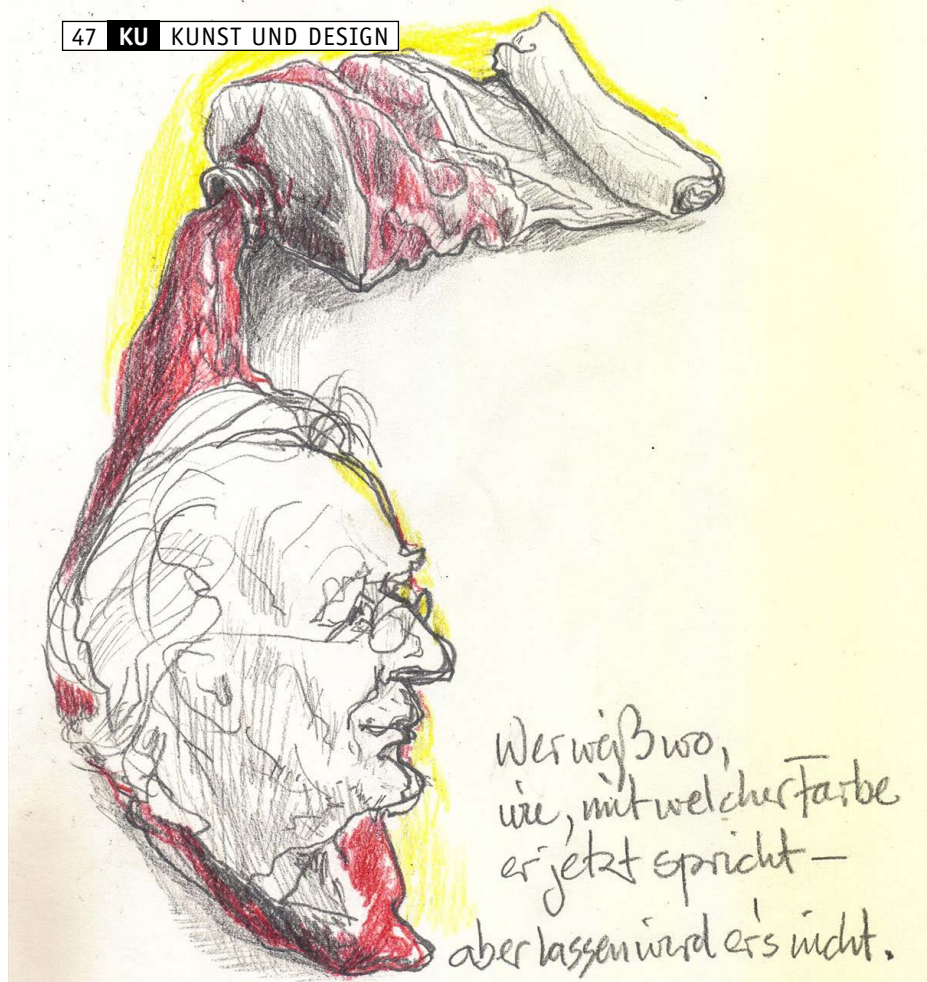 47 KU KUNST UND DESIGN
Wer weiß wo,
wie, mit welcher Farbe
er jetzt spricht –
aber lassen wird er's nicht.